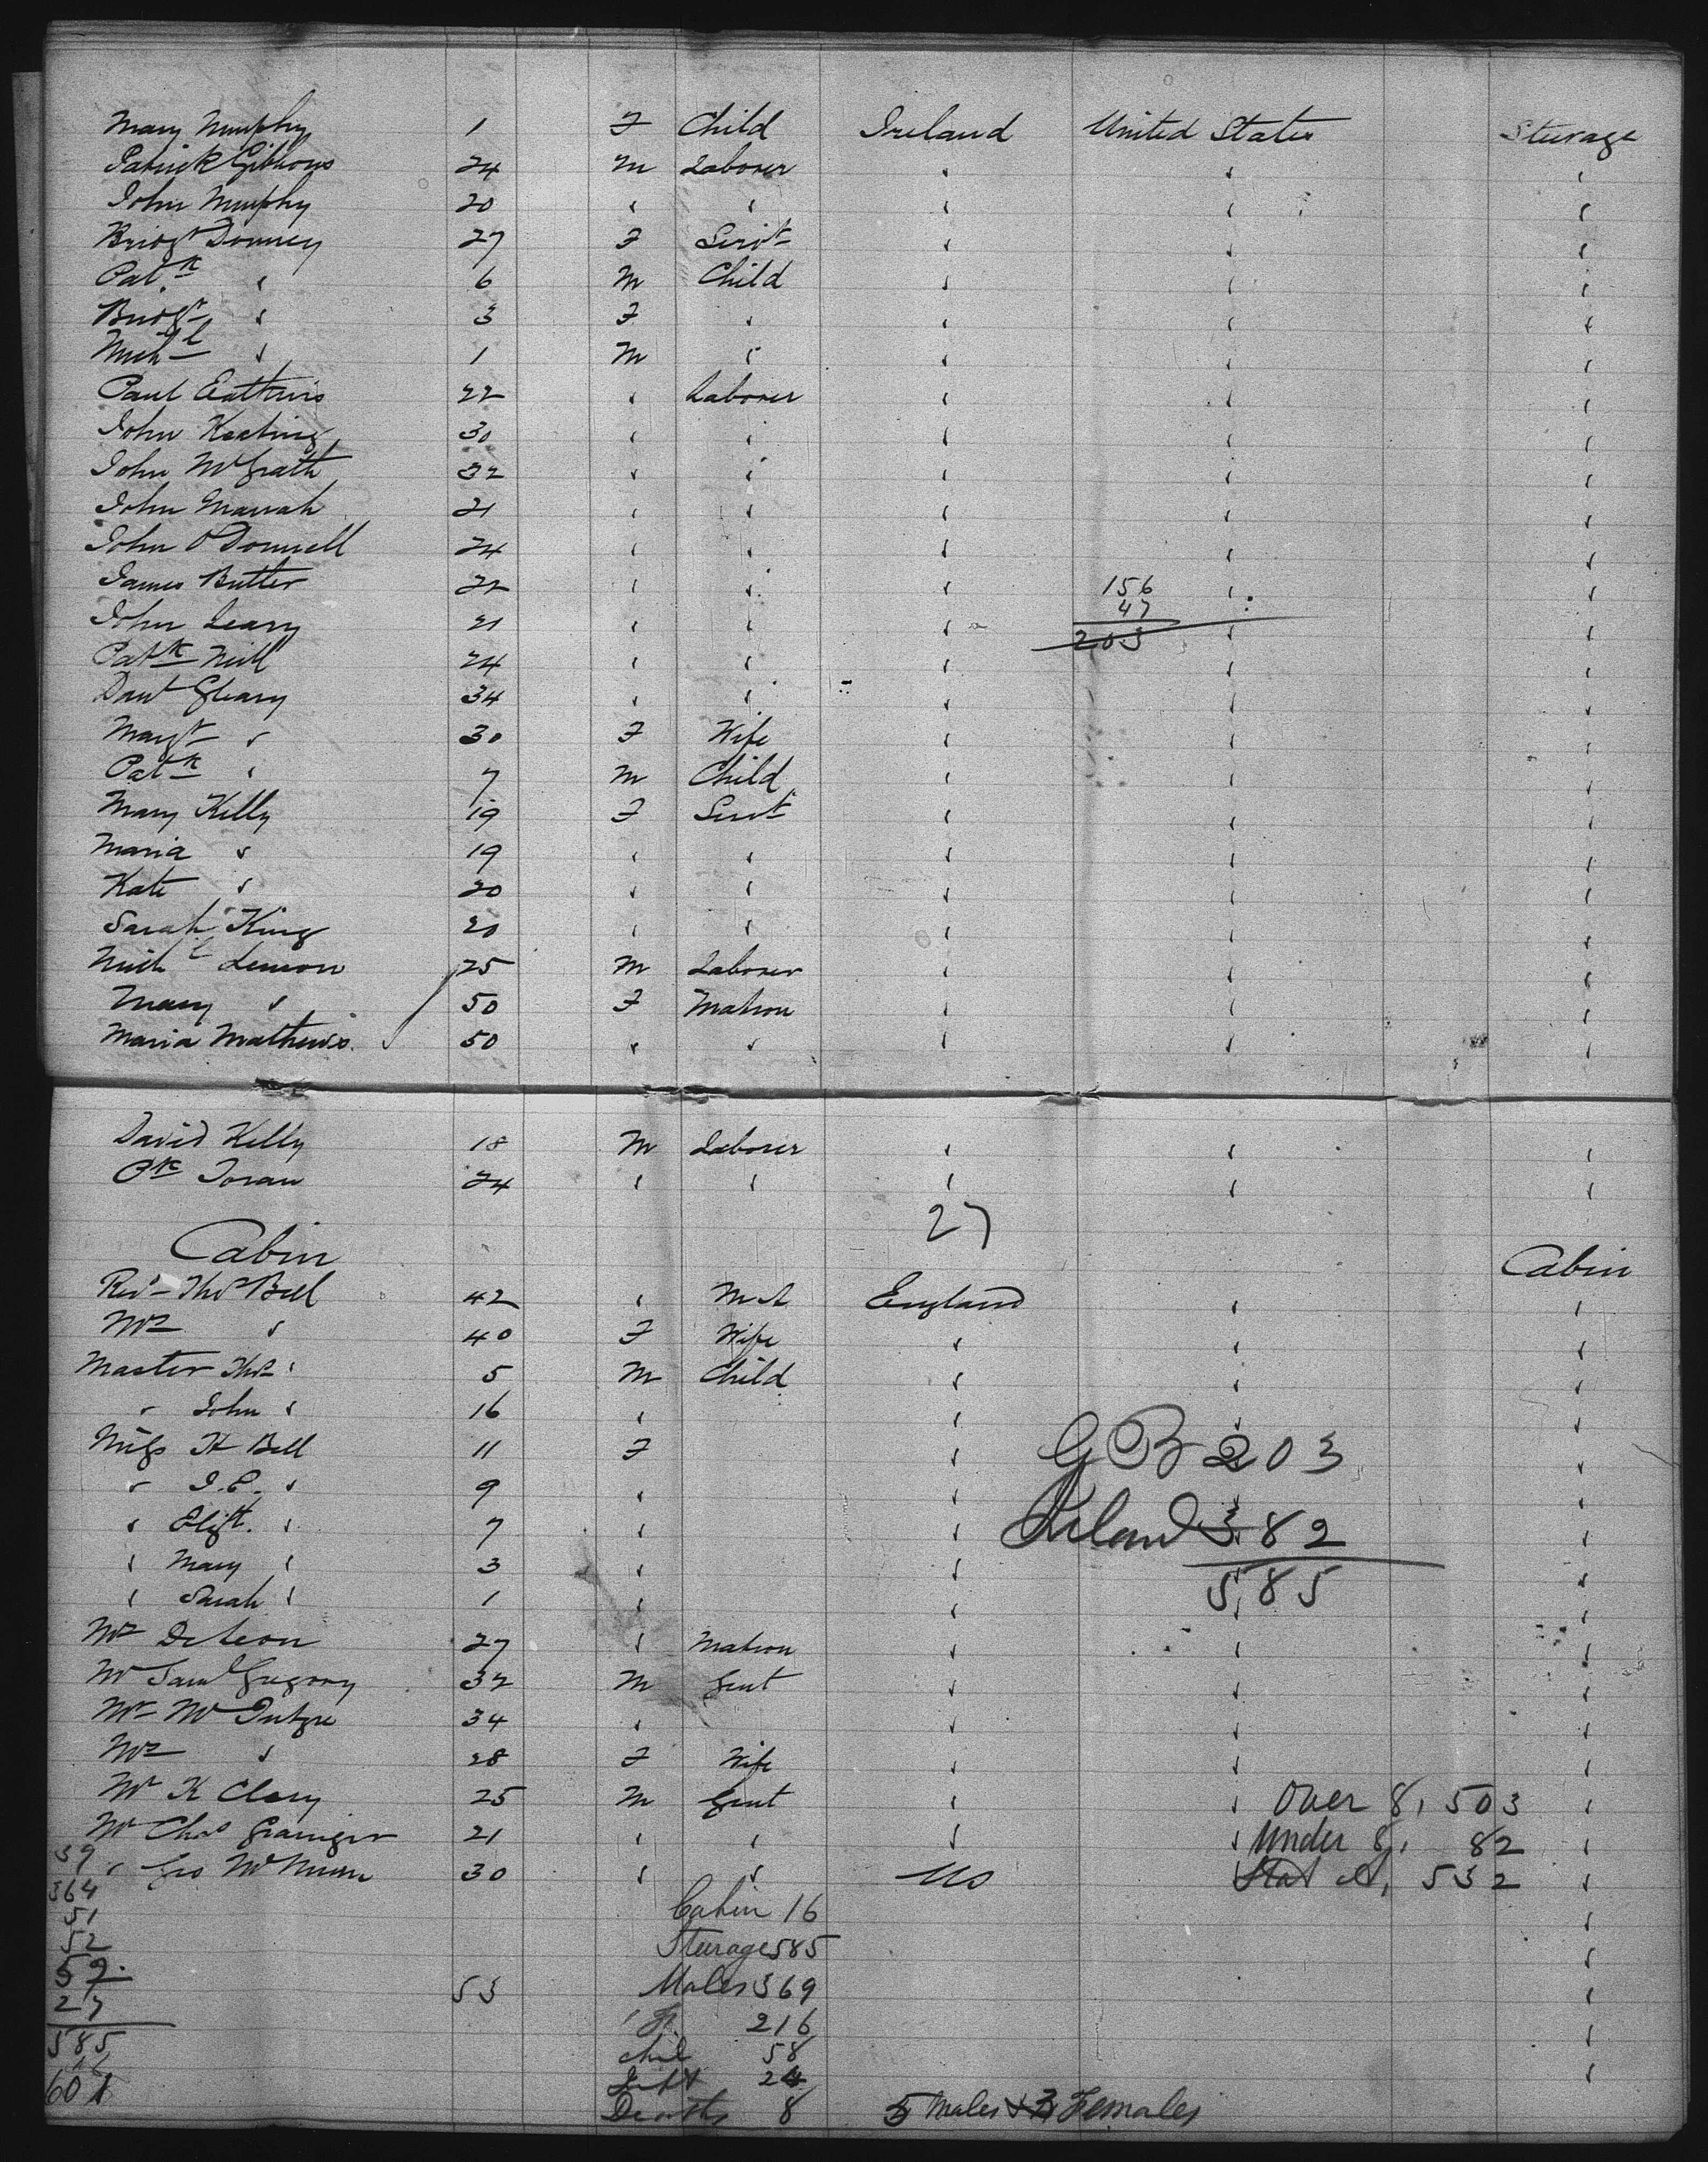 Mary Murphy 1 F Child Ireland United States Steerage
Patrick Gibbons 24 M Laborer " " "
John Murphy 20 " " " " "
Bridgt Downey 27 F Servt " " "
Patk " 6 M Child " " "
Bridgt " 3 F " " " "
Michl " 1 M " " " "
Paul 22 " Laborer " " "
John Keating 30 " " " " "
John McGrath 32 " " " " "
John 21 " " " " "
John O'Donnell 24 " " " " "
James Butler 22 " " " " "
156
47
203
John Leary 21 " " " " "
Patk Neill 24 " " " " "
Danl Gleary 34 " " " " "
Margt " 30 F Wife " " "
Patk " 7 M Child " " "
Mary Kelly 19 F Servt " " "
Maria " 19 " " " " "
Kate " 20 " " " " "
Sarah King 20 " " " " "
Michl Lennon 25 M Laborer " " "
Mary " 50 F Matron " " "
Maria Mathews 50 " " " " "
David Kelly 18 M Laborer " " "
Pk Toran 24 " " " " "
27
Cabin Cabin
Revd Thos Bell 42 " M A England " "
Mrs " 40 F Wife " " "
Master Thos " 5 M Child " " "
" John " 16 " " " "
Miss K Bell 11 F " " "
" I.E. " 9 " " " "
" Elizt. " 7 " " " "
" Mary " 3 " " " "
" Sarah " 1 " " " "
GB 203
Ireland 382
585
Mrs DeLeon 27 " Matron " " "
Mr Saml Gregory 32 M Gent " " "
Mr McIntyre 34 " " " "
Mrs " 28 F Wife " " "
Mr K Clary 25 M Gent " " "
Mr Chas Grainger 21 " " " " "
" Geo 30 " " US " "
Over 8, 503
Under 8, 82
Stat A, 532
39
364
51
52
52
27
585
16
601
53
Cabin 16
Steerage 585
Males 369
" F. 216
Chil 58
Inft 24
Deaths 8 5 Males & 3 Females